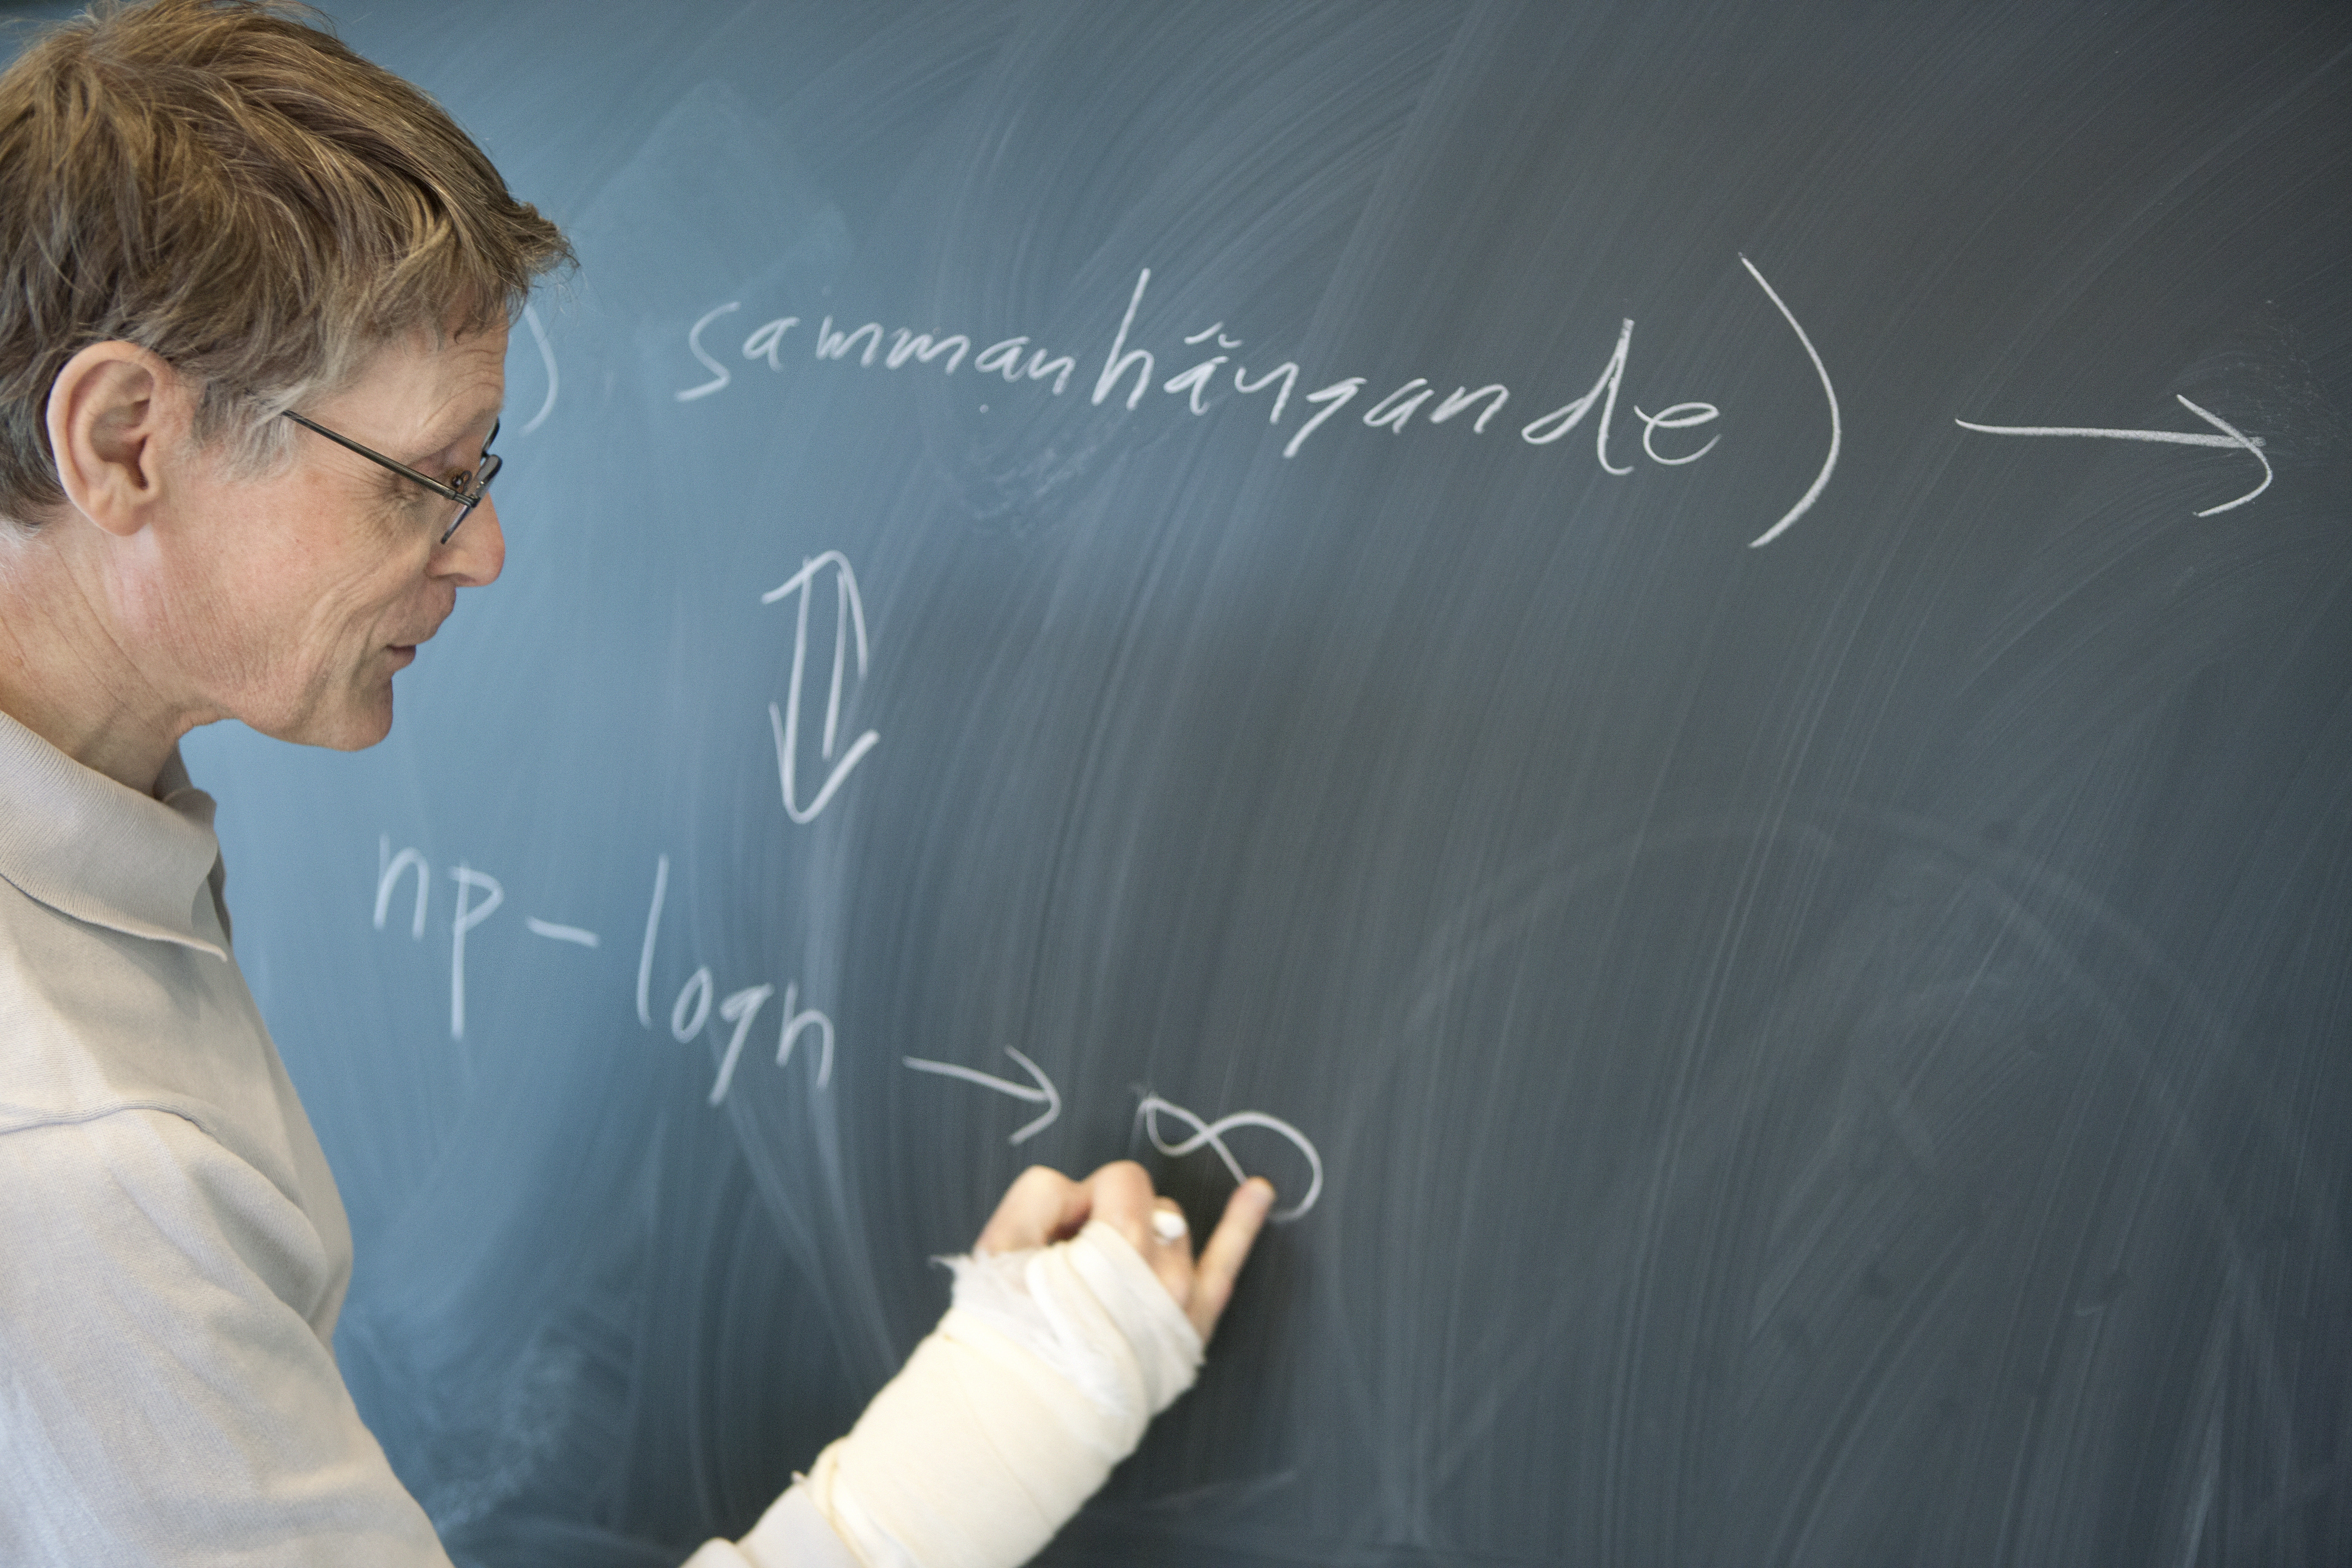 ) sammanhängande) →
⇕
np - logn → ∞